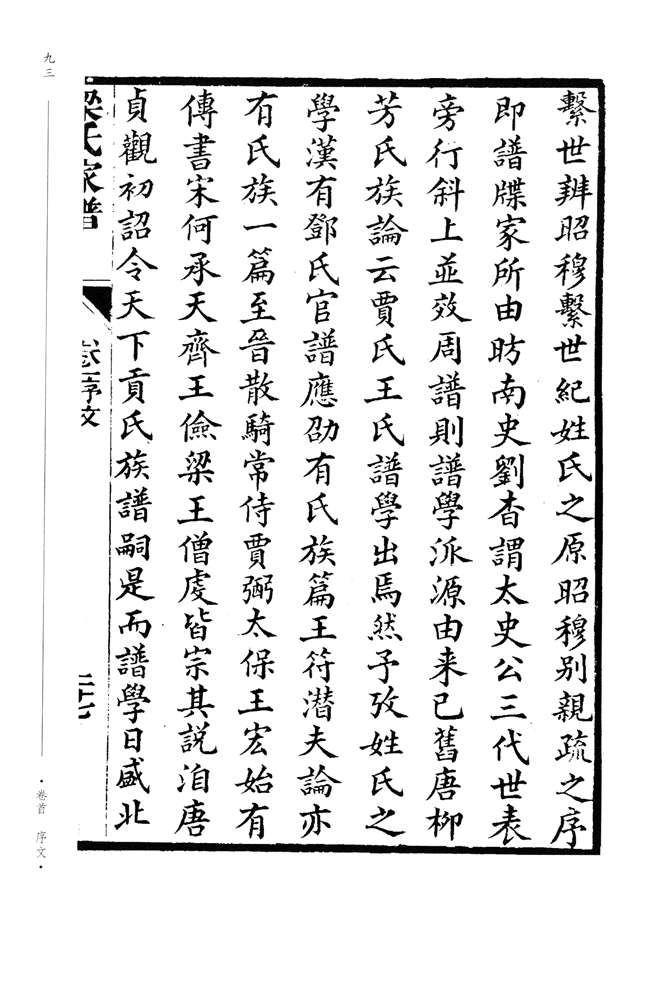 繫世辨昭穆繫世紀姓氏之原昭穆別親疏之序
即譜牒家所由昉南史劉杳謂太史公三代世表
旁行斜上並效周譜則譜學派源由来已舊唐柳
芳氏族論云賈氏王氏譜學出焉然予攷姓氏之
學漢有鄧氏官譜應劭有氏族篇王符潛夫論亦
有氏族一篇至晉散騎常侍賈弼太保王宏始有
傳書宋何承天齊王儉梁王僧虔皆宗其説洎唐
貞觀初詔令天下貢氏族譜嗣是而譜學日盛北
梁氏家譜
序文
二十七
九三
·卷首 序文·